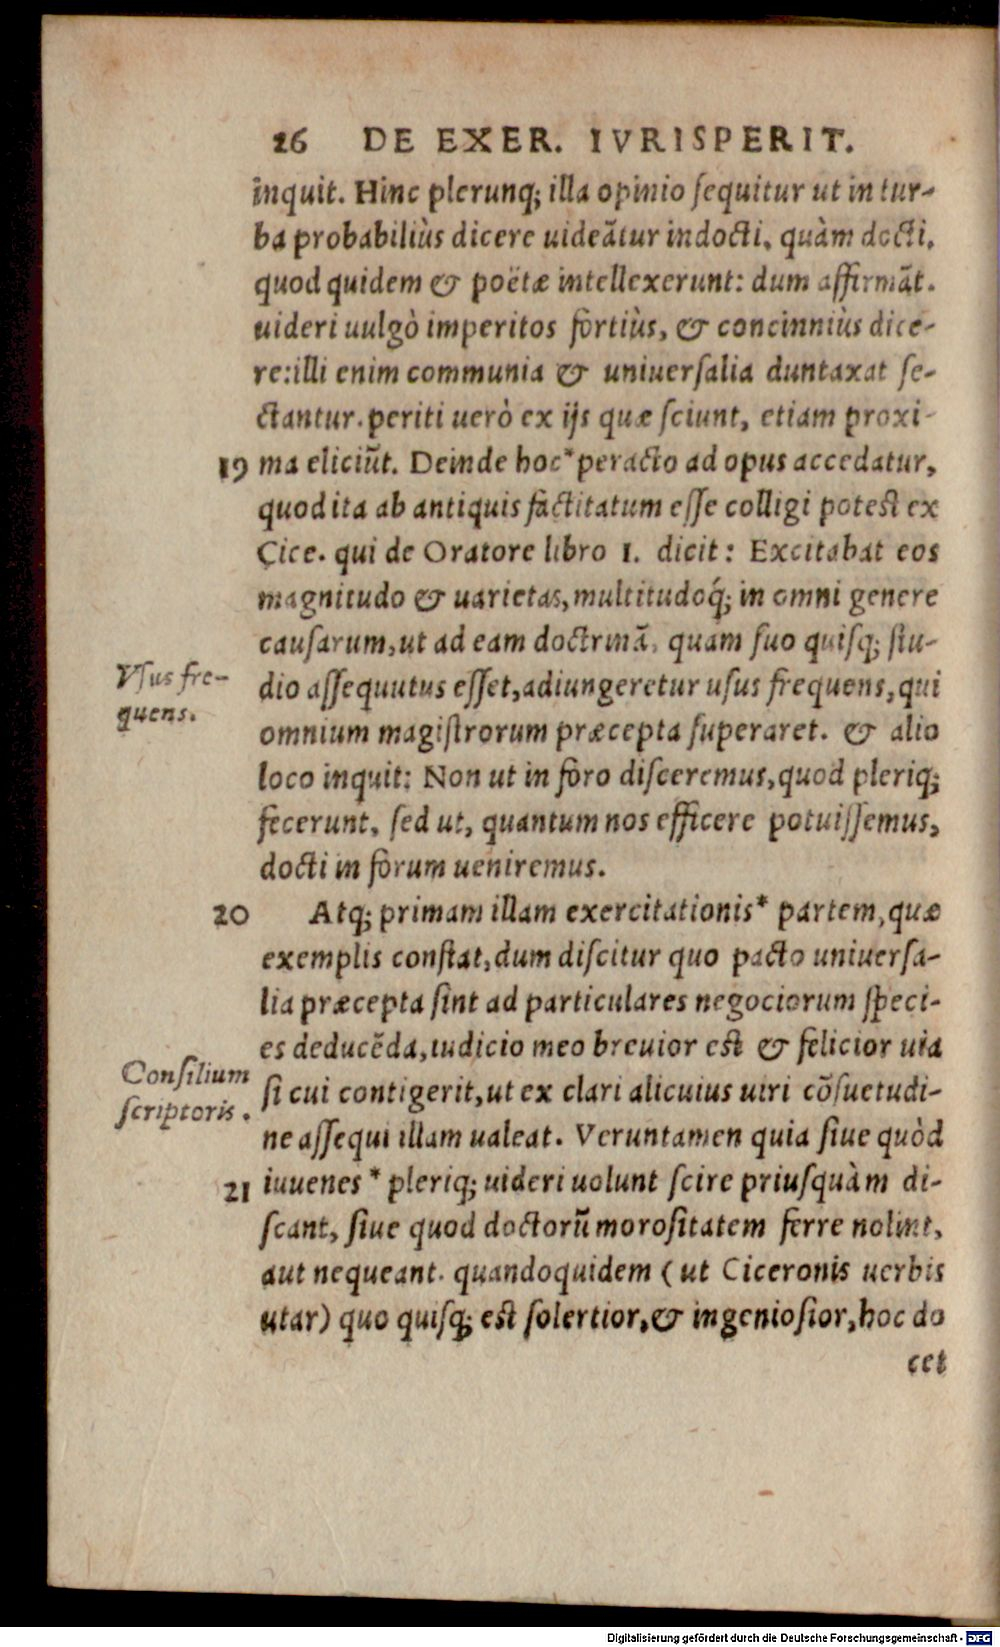 26 DE EXER. IVRISPERIT.
inquit. Hinc plerunq; illa opinio ſequitur ut in tur-
ba probabiliùs dicere uideãtur indocti, quàm docti,
quod quidem & poëtæ intellexerunt: dum affirmãt.
uideri uulgò imperitos fortiùs, & concinniùs dice-
re: illi enim communia & uniuerſalia duntaxat ſe-
ctantur. periti uerò ex ijs quæ ſciunt, etiam proxi-
19 ma eliciũt. Deinde hoc* peracto ad opus accedatur,
quod ita ab antiquis factitatum eſſe colligi poteſt ex
Cice. qui de Oratore libro 1. dicit: Excitabat eos
magnitudo & uarietas, multitudoq́; in omni genere
cauſarum, ut ad eam doctrinã, quam ſuo quiſq; ſtu-
Vſus fre-
quens.
dio aſſequutus eſſet, adiungeretur uſus frequens, qui
omnium magiſtrorum præcepta ſuperaret. & alio
loco inquit: Non ut in foro diſceremus, quod pleriq;
fecerunt, ſed ut, quantum nos efficere potuiſſemus,
docti in forum ueniremus.
20 Atq; primam illam exercitationis* partem, quæ
exemplis conſtat, dum diſcitur quo pacto uniuerſa-
lia præcepta ſint ad particulares negociorum ſpeci-
es deducẽda, iudicio meo breuior eſt & felicior uia
Conſilium
ſcriptoris.
ſi cui contigerit, ut ex clari alicuius uiri cõſuetudi-
ne aſſequi illam ualeat. Veruntamen quia ſiue quòd
21 iuuenes * pleriq; uideri uolunt ſcire priuſquàm di-
ſcant, ſiue quod doctorũ moroſitatem ferre nolint,
aut nequeant. quandoquidem ( ut Ciceronis uerbis
utar) quo quiſq; eſt ſolertior, & ingenioſior, hoc do
cet
Digitalisierung gefördert durch die Deutsche Forschungsgemeinschaft - DFG